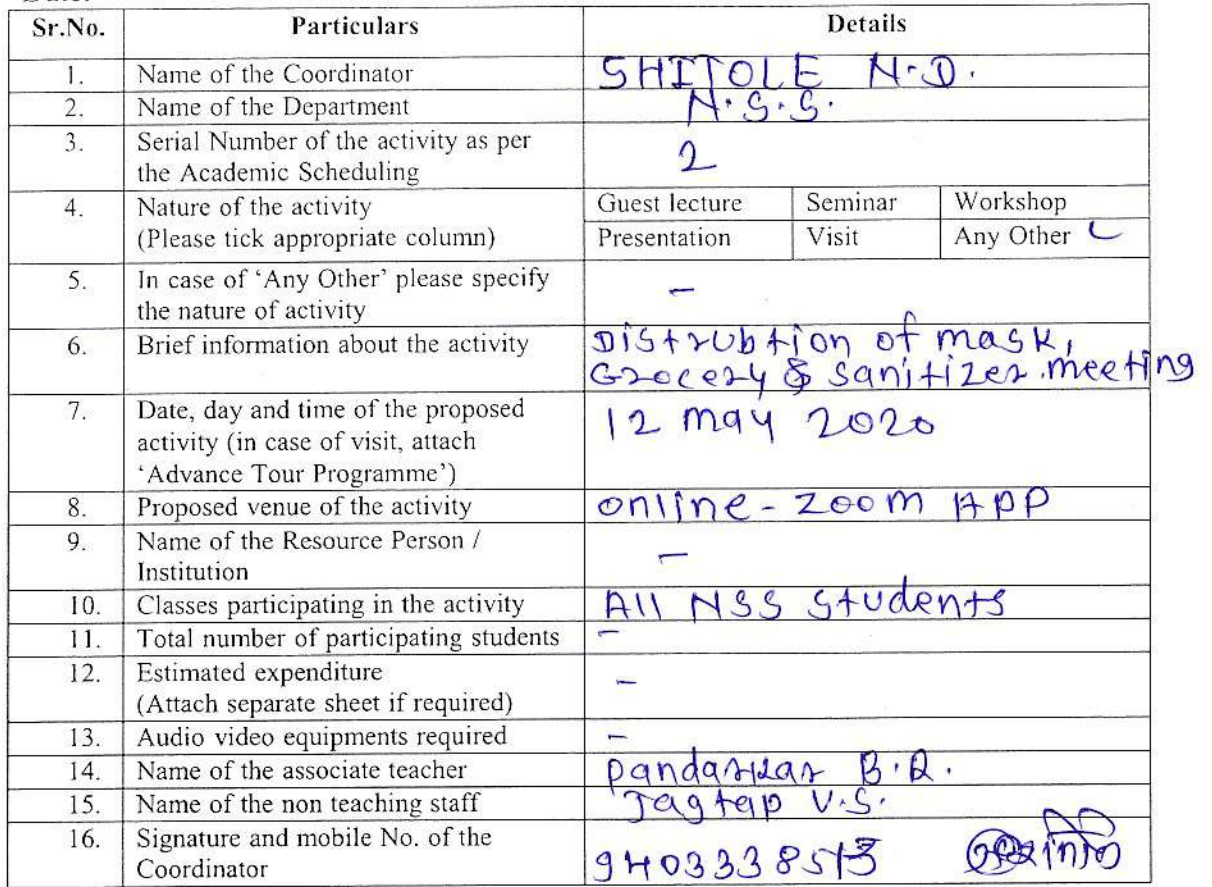 Sr.No. Particulars Details
1. Name of the Coordinator SHITOLE N.D.
2. Name of the Department N.S.S.
3. Serial Number of the activity as per
the Academic Scheduling 2
4. Nature of the activity Guest lecture Seminar Workshop
(Please tick appropriate column) Presentation Visit Any Other
5. In case of 'Any Other' please specify
the nature of activity -
6. Brief information about the activity Distrubtion of mask,
Grocery & Sanitizer meeting
7. Date, day and time of the proposed 12 may 2020
activity (in case of visit, attach
'Advance Tour Programme')
8. Proposed venue of the activity online - zoom App
9. Name of the Resource Person / -
Institution
10. Classes participating in the activity All NSS Students
11. Total number of participating students -
12. Estimated expenditure -
(Attach separate sheet if required)
13. Audio video equipments required -
14. Name of the associate teacher pandarkar B.R.
15. Name of the non teaching staff Jagtap V.S.
16. Signature and mobile No. of the
Coordinator 9403338513